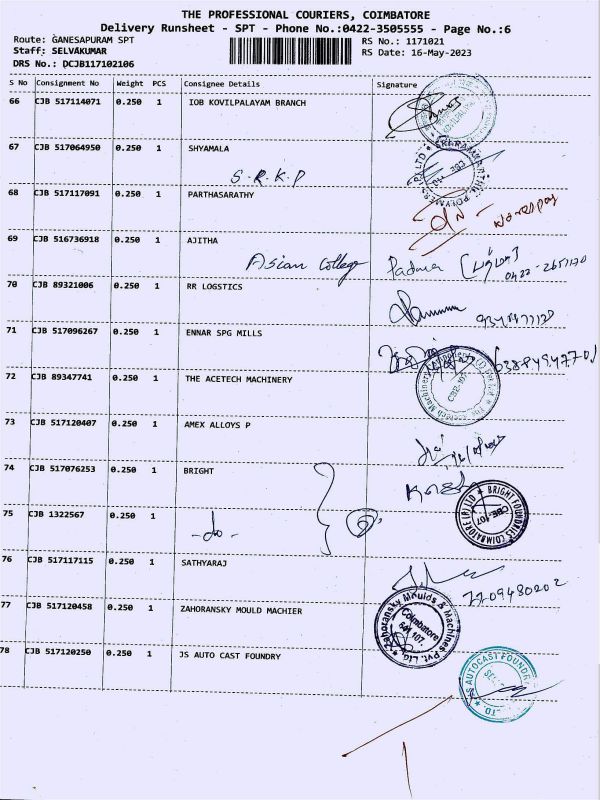 THE PROFESSIONAL COURIERS, COIMBATORE
Delivery Runsheet - SPT - Phone No.:0422-3505555 - Page No.:6
Route: GANESAPURAM SPT
RS No.: 1171021
Staff: SELVAKUMAR
RS Date: 16-May-2023
DRS No.: DCJB117102106
S No Consignment No Weight PCS Consignee Details Signature
66 CJB 517114071 0.250 1 IOB KOVILPALAYAM BRANCH
67 CJB 517064950 0.250 1 SHYAMALA
S.R.K.P
68 CJB 517117091 0.250 1 PARTHASARATHY
69 CJB 516736918 0.250 1 AJITHA
Asian College Padma
70 CJB 89321006 0.250 1 RR LOGSTICS
71 CJB 517096267 0.250 1 ENNAR SPG MILLS
72 CJB 89347741 0.250 1 THE ACETECH MACHINERY
73 CJB 517120407 0.250 1 AMEX ALLOYS P
74 CJB 517076253 0.250 1 BRIGHT
BRIGHT FOUNDRIES COIMBATORE (P) LTD
CBE-107
75 CJB 1322567 0.250 1 -do-
76 CJB 517117115 0.250 1 SATHYARAJ
7709480202
77 CJB 517120458 0.250 1 ZAHORANSKY MOULD MACHIER
Zahoransky Moulds & Machines Pvt. Ltd
Coimbatore
641 107
78 CJB 517120250 0.250 1 JS AUTO CAST FOUNDRY